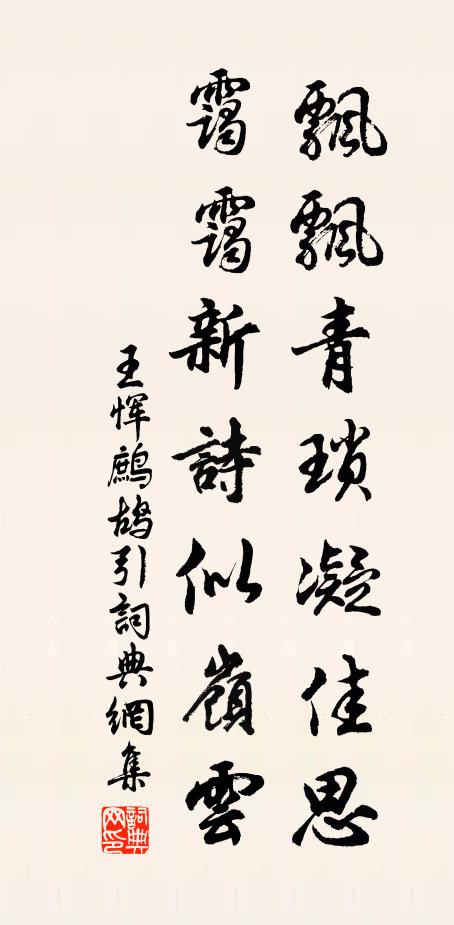 飄飄青瑣凝佳思
靄靄新詩似嶺雲
王惲鷓鴣引詞典網集
詞典网印